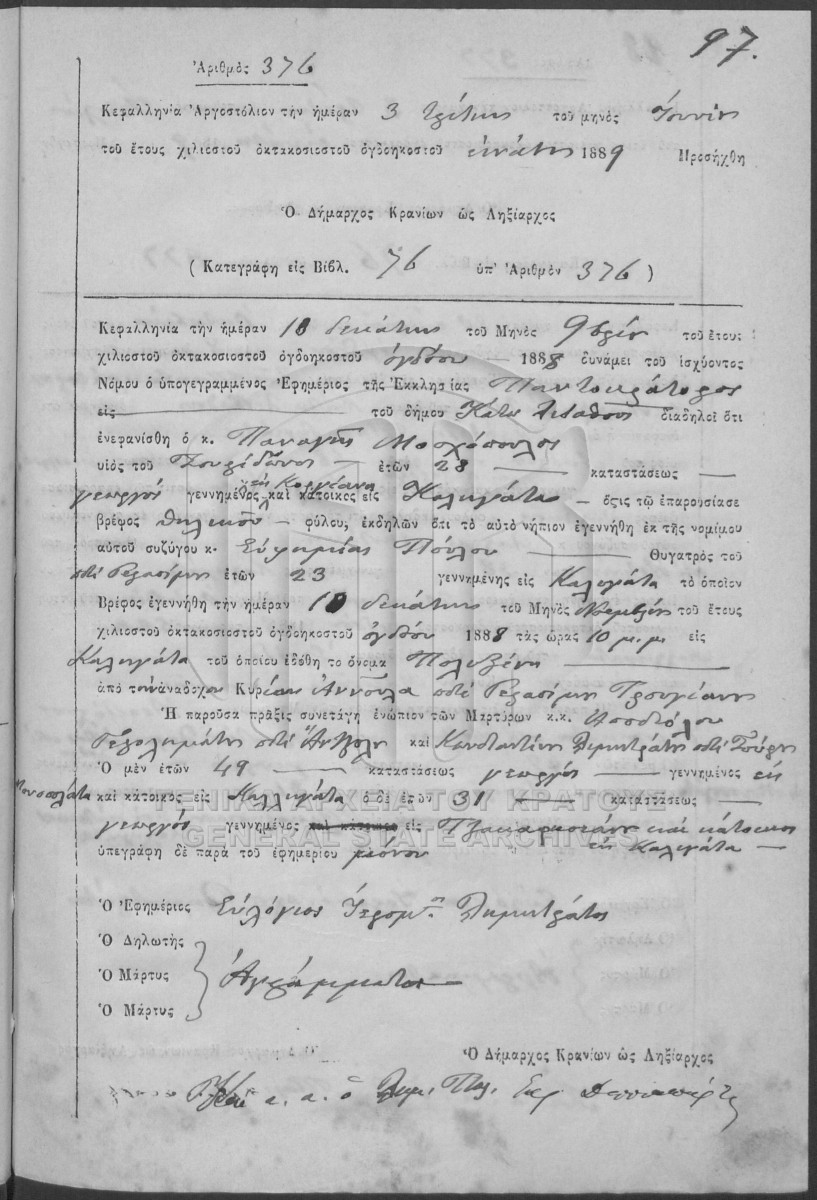 97.
Ἀριθμὸς 376
Κεφαλληνία Ἀργοστόλιον τὴν ἡμέραν 3 τρίτην τοῦ μηνὸς Ἰουνίου
τοῦ ἔτους χιλιοστοῦ ὀκτακοσιοστοῦ ὀγδοηκοστοῦ ἐννάτου 1889 Προσήχθη
Ὁ Δήμαρχος Κρανίων ὡς Ληξίαρχος
( Κατεγράφη εἰς Βιβλ. 76 ὑπ' Ἀριθμὸν 376 )
Κεφαλληνία τὴν ἡμέραν 10 δεκάτην τοῦ Μηνὸς 9βρίου τοῦ ἔτους
χιλιοστοῦ ὀκτακοσιοστοῦ ὀγδοηκοστοῦ ὀγδόου — 1888 δυνάμει τοῦ ἰσχύοντος
Νόμου ὁ ὑπογεγραμμένος Ἐφημέριος τῆς Ἐκκλησίας Παντοκράτορος
εἰς — τοῦ δήμου Κάτω Λειβαθοῦς διαδηλοῖ ὅτι
ἐνεφανίσθη ὁ κ. Παναγῆς Μοσχόπουλος
υἱὸς τοῦ Σπυρίδωνος — ἐτῶν 28 — καταστάσεως —
γεωργός γεννημένος καὶ κάτοικος εἰς Καλιγάτα — ὅςτις τῷ ἐπαρουσίασε
βρέφος θηλυκοῦ — φύλου, ἐκδηλῶν ὅτι τὸ αὐτὸ νήπιον ἐγεννήθη ἐκ τῆς νομίμου
αὐτοῦ συζύγου κ. Εὐφημίας Πούλου — Θυγατρὸς τοῦ
ποτὲ Γερασίμου ἐτῶν 23 γεννημένης εἰς Καλιγάτα τὸ ὁποῖον
Βρέφος ἐγεννήθη τὴν ἡμέραν 10 δεκάτην τοῦ Μηνὸς Νοεμβρίου τοῦ ἔτους
χιλιοστοῦ ὀκτακοσιοστοῦ ὀγδοηκοστοῦ ὀγδόου 1888 τὰς ὥρας 10 μ.μ. εἰς
Καλιγάτα τοῦ ὁποίου ἐδόθη τὸ ὄνομα Πολυξένη —
ἀπὸ τὴν ἀνάδοχον Κυρίαν Ἀννούλα ποτὲ Γερασίμου
Ἡ παροῦσα πρᾶξις συνετάγη ἐνώπιον τῶν Μαρτύρων κ.κ. Ἀποστόλου
ποτὲ καὶ Κωνσταντίνου Δημητράτου ποτὲ
Ὁ μὲν ἐτῶν 49 — καταστάσεως γεωργός — γεννημένος εἰς
καὶ κάτοικος εἰς Καλλιγάτα ὁ δὲ ἐτῶν 31 — καταστάσεως —
γεωργός γεννημένος καὶ κάτοικος εἰς καὶ κάτοικος
εἰς Καλιγάτα —
ὑπεγράφη δὲ παρὰ τοῦ ἐφημερίου μόνου
ΓΕΝΙΚΑ ΑΡΧΕΙΑ ΤΟΥ ΚΡΑΤΟΥΣ
GENERAL STATE ARCHIVES
Ὁ Ἐφημέριος Εὐλόγιος Ἱερομ. Δημητράτος
Ὁ Δηλωτὴς
Ὁ Μάρτυς Ἀγράμματοι
Ὁ Μάρτυς
Ὁ Δήμαρχος Κρανίων ὡς Ληξίαρχος